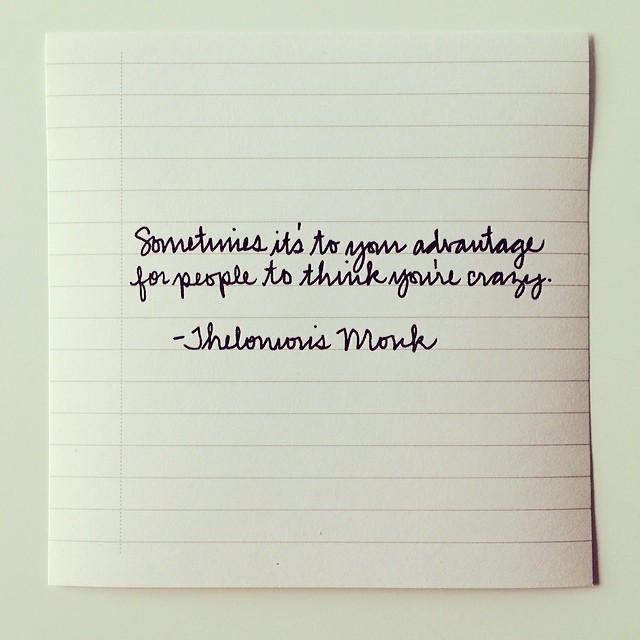 Sometimes it's to your advantage
for people to think you're crazy.
-Thelonious Monk